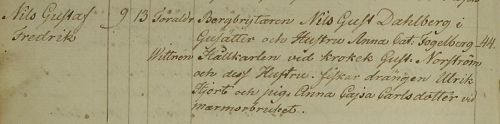 Nils Gustaf 9 13 Föräldr Bergbrytaren Nils Gust Dahlberg i
Fredrik Gusätter och Hustru Anna Cat. Fogelberg 44.
Wittnen Hållkarlen vid krokek Gust. Norström
och dess Hustru. fiskar drängen Ulrik
Hjort och pig. Anna Cajsa Carlsdotter vid
marmorbruket.